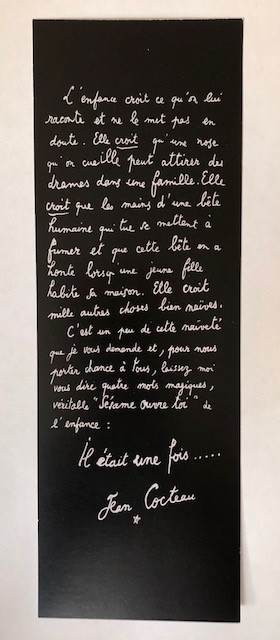 L'enfance croit ce qu'on lui
raconte et ne le met pas en
doute. Elle croit qu'une rose
qu'on cueille peut attirer des
drames dans une famille. Elle
croit que les mains d'une bête
humaine qui tue se mettent à
fumer et que cette bête en a
honte lorsqu'une jeune fille
habite sa maison. Elle croit
mille autres choses bien naïves.
C'est un peu de cette naïveté
que je vous demande et, pour nous
porter chance à tous, laissez moi
vous dire quatre mots magiques,
véritable "Sésame ouvre toi" de
l'enfance :
Il était une fois.....
Jean Cocteau